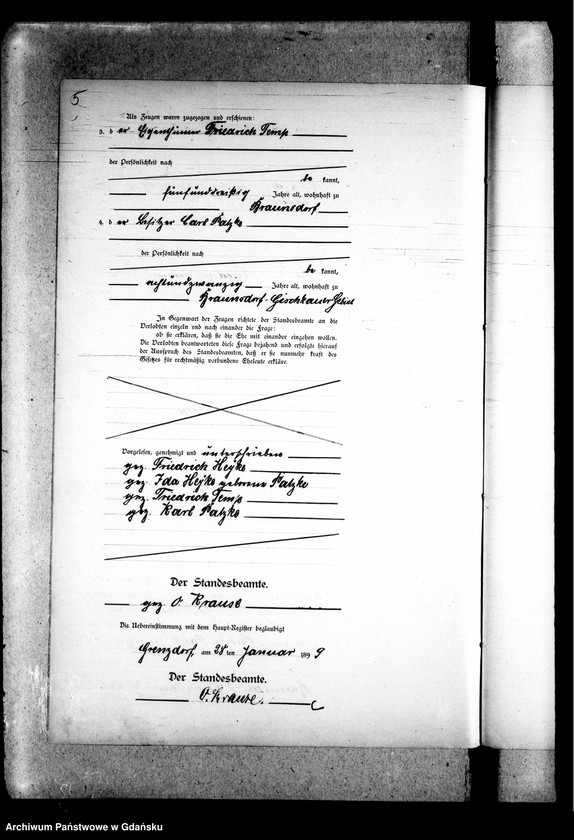 5
Als Zeugen waren zugezogen und erschienen:
3. d er Eigenthümer Friedrich Temp
der Persönlichkeit nach
be kannt,
fünfunddreißig Jahre alt, wohnhaft zu
Braunsdorf
4. d er Besitzer Carl Patzke
der Persönlichkeit nach
be kannt,
achtundzwanzig Jahre alt, wohnhaft zu
Braunsdorf
In Gegenwart der Zeugen richtete der Standesbeamte an die
Verlobten einzeln und nach einander die Frage:
ob sie erklären, daß sie die Ehe mit einander eingehen wollen.
Die Verlobten beantworteten diese Frage bejahend und erfolgte hierauf
der Ausspruch des Standesbeamten, daß er sie nunmehr kraft des
Gesetzes für rechtmäßig verbundene Eheleute erkläre.
Vorgelesen, genehmigt und unterschrieben
gez. Friedrich Heyke
gez. Ida Heyke geborene Patzke
gez. Friedrich Temp
gez. Karl Patzke
Der Standesbeamte.
gez. O. Krause
Die Uebereinstimmung mit dem Haupt-Register beglaubigt
Grenzdorf, am 28 ten Januar 1899
Der Standesbeamte.
O. Krause.
Archiwum Państwowe w Gdańsku